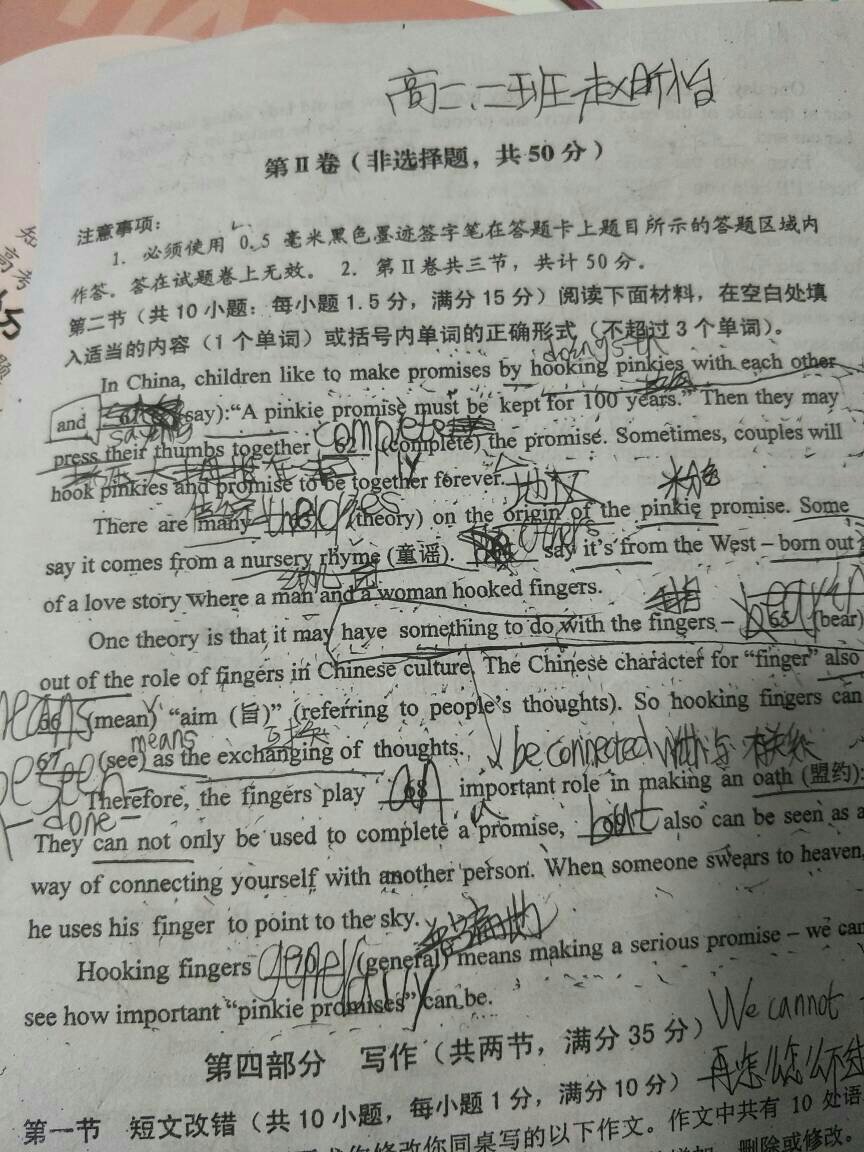 高二、二班 赵昕怡
第Ⅱ卷（非选择题，共50分）
注意事项：
1. 必须使用 0.5 毫米黑色墨迹签字笔在答题卡上题目所示的答题区域内
作答。答在试题卷上无效。 2. 第Ⅱ卷共三节，共计 50 分。
第二节（共 10 小题：每小题 1.5 分，满分 15 分）阅读下面材料，在空白处填
入适当的内容（1 个单词）或括号内单词的正确形式（不超过 3 个单词）。
In China, children like to make promises by hooking pinkies with each other
and 61 (say):“A pinkie promise must be kept for 100 years.” Then they may
saying
completely
press their thumbs together 62 (complete) the promise. Sometimes, couples will
hook pinkies and promise to be together forever.
地区
粉色
There are many 63 (theory) on the origin of the pinkie promise. Some
others
say it comes from a nursery rhyme (童谣). say it's from the West – born out
幼儿园
of a love story where a man and a woman hooked fingers.
One theory is that it may have something to do with the fingers – 65 (bear)
out of the role of fingers in Chinese culture. The Chinese character for “finger” also
means
66 (mean) “aim (旨)” (referring to people's thoughts). So hooking fingers can
means
67 (see) as the exchanging of thoughts.
be connected with 与 相关联
be seen
Therefore, the fingers play 68 important role in making an oath (盟约):
an
done
They can not only be used to complete a promise, but also can be seen as a
way of connecting yourself with another person. When someone swears to heaven,
he uses his finger to point to the sky.
Hooking fingers (general) means making a serious promise – we can
generally
see how important “pinkie promises” can be.
We cannot
第四部分 写作（共两节，满分 35 分）
再怎么怎么不
第一节 短文改错（共 10 小题，每小题 1 分，满分 10 分）
修改你同桌写的以下作文。作文中共有 10 处语
删除或修改。